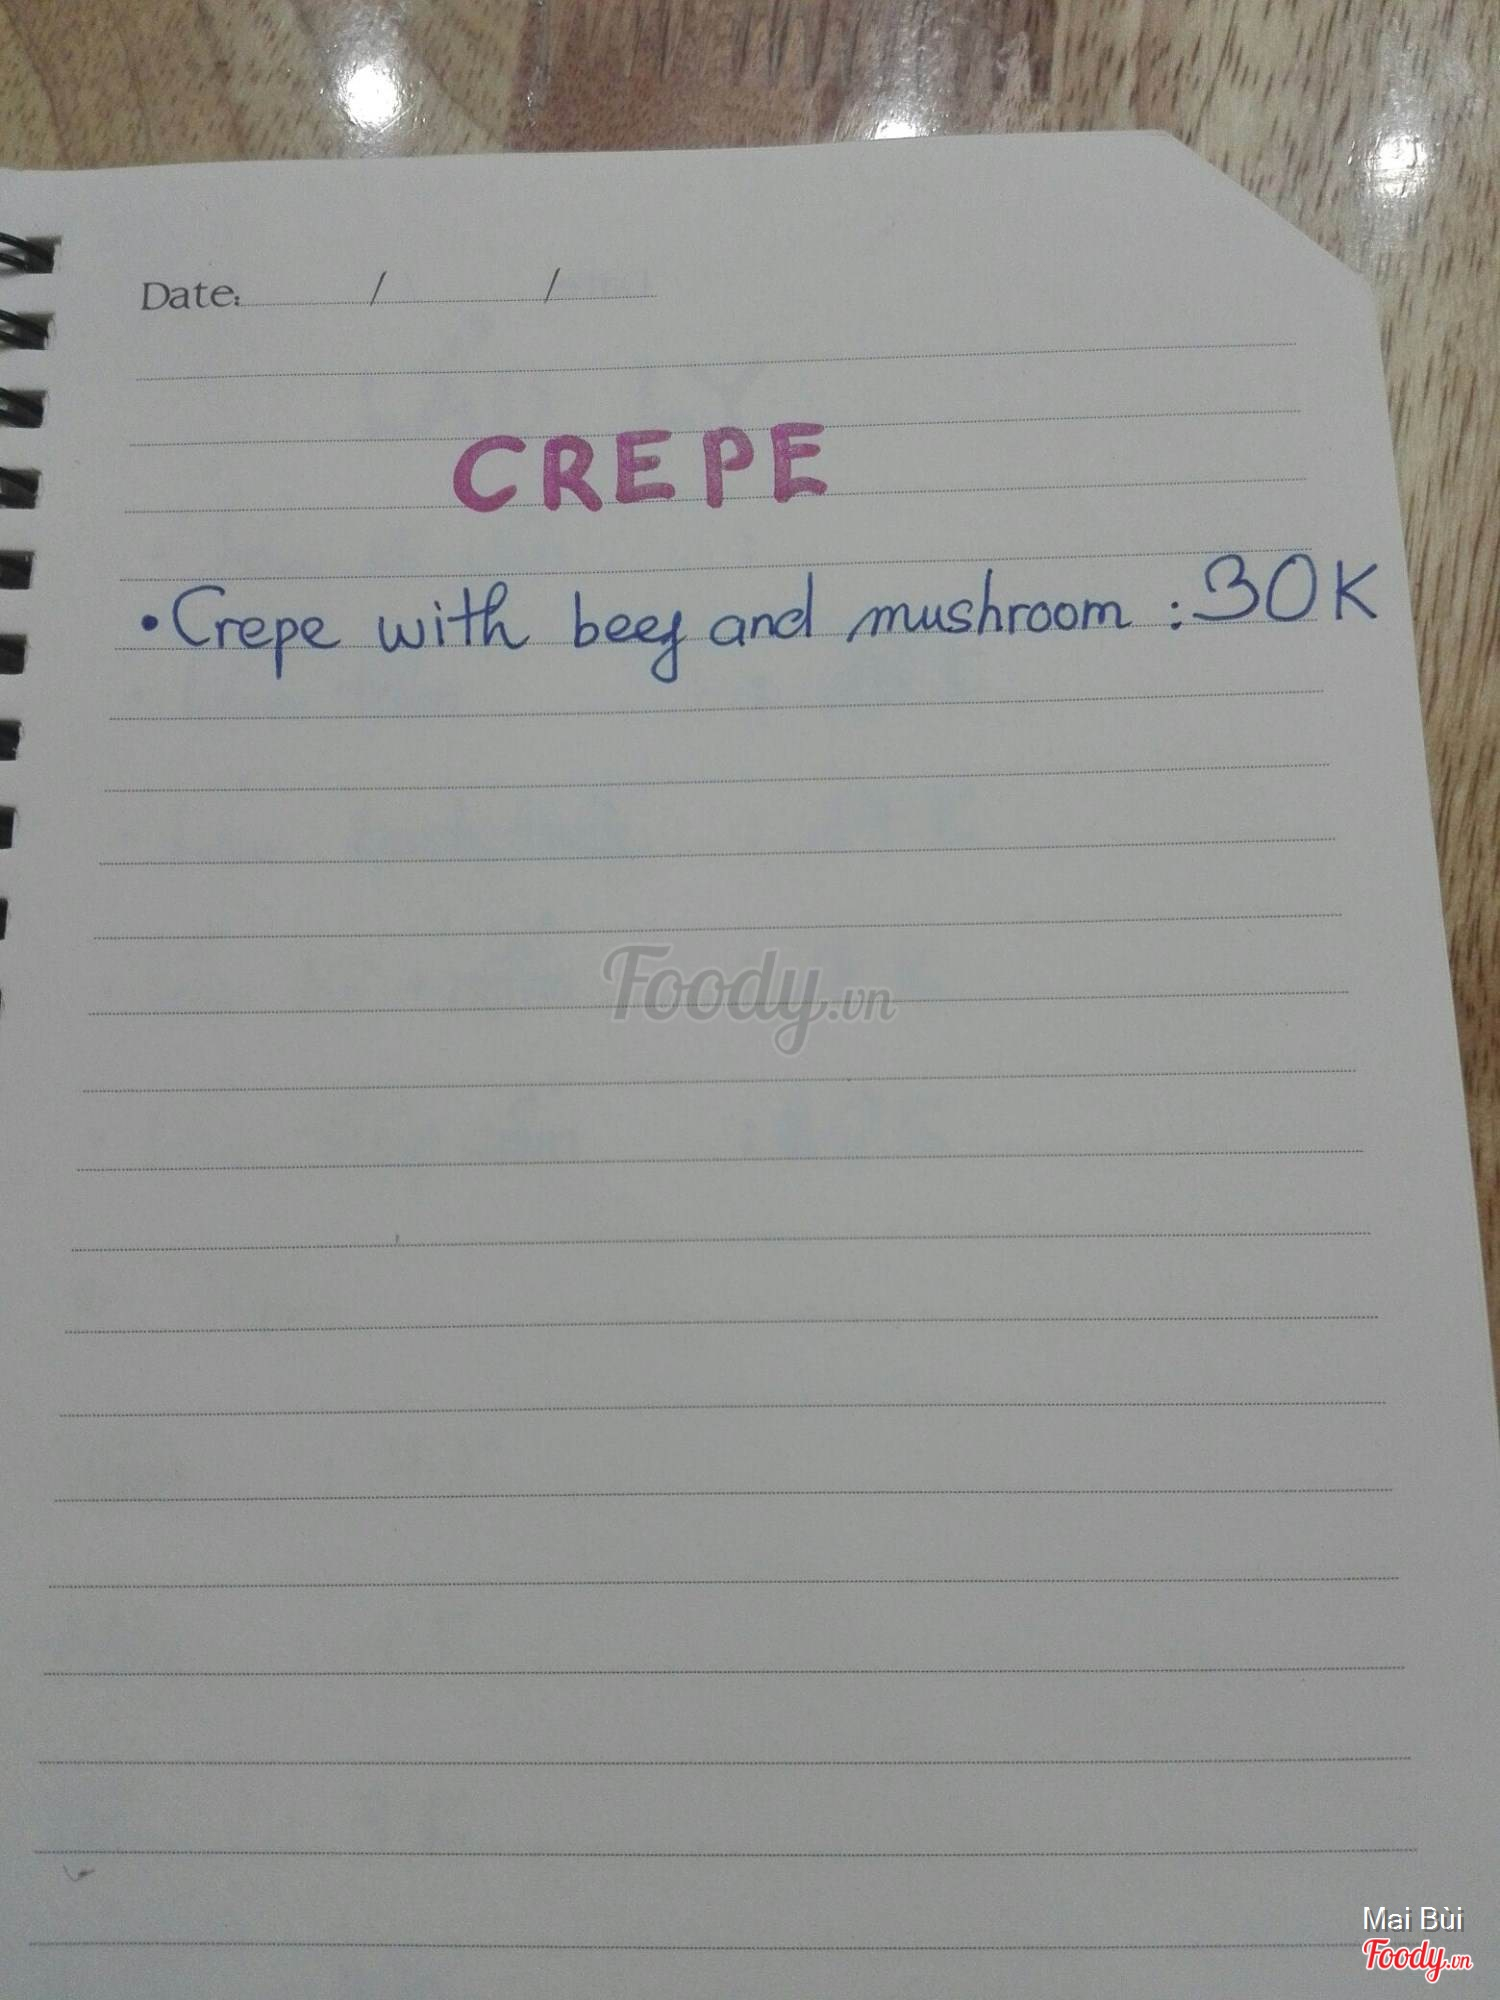 Date: / /
CREPE
• Crepe with beef and mushroom : 30K
Foody.vn
Mai Bùi
Foody.vn